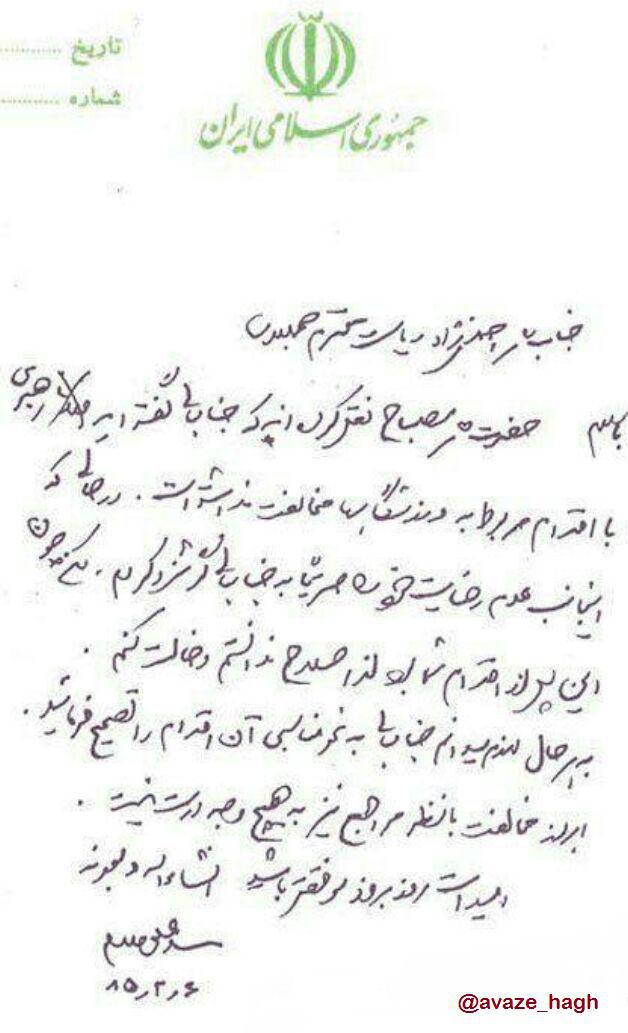 تاریخ ............
شماره ............
جمهوری اسلامی ایران
جناب آقای احمدی‌نژاد ریاست محترم جمهوری
با سلام حضرت آقای مصباح نقل کرده‌اند که جنابعالی گفته‌اید رهبری
با اقدام مربوط به ورزشگاهها مخالفت نداشته است. در حالی که
اینجانب عدم رضایت خود را صریحاً به جنابعالی گوشزد کردم. لکن چون
این پس از اقدام شما بود لذا صلاح ندانستم دخالت کنم.
به هر حال لازم میدانم جنابعالی به نحو مناسبی آن اقدام را تصحیح فرمائید.
ابراز مخالفت با نظر مراجع نیز به هیچ وجه درست نیست.
امید است روز بروز موفقتر باشید انشاءاله و بعونه
سید علی خامنه‌ای
۸۵ر۲ر۶
@avaze_hagh